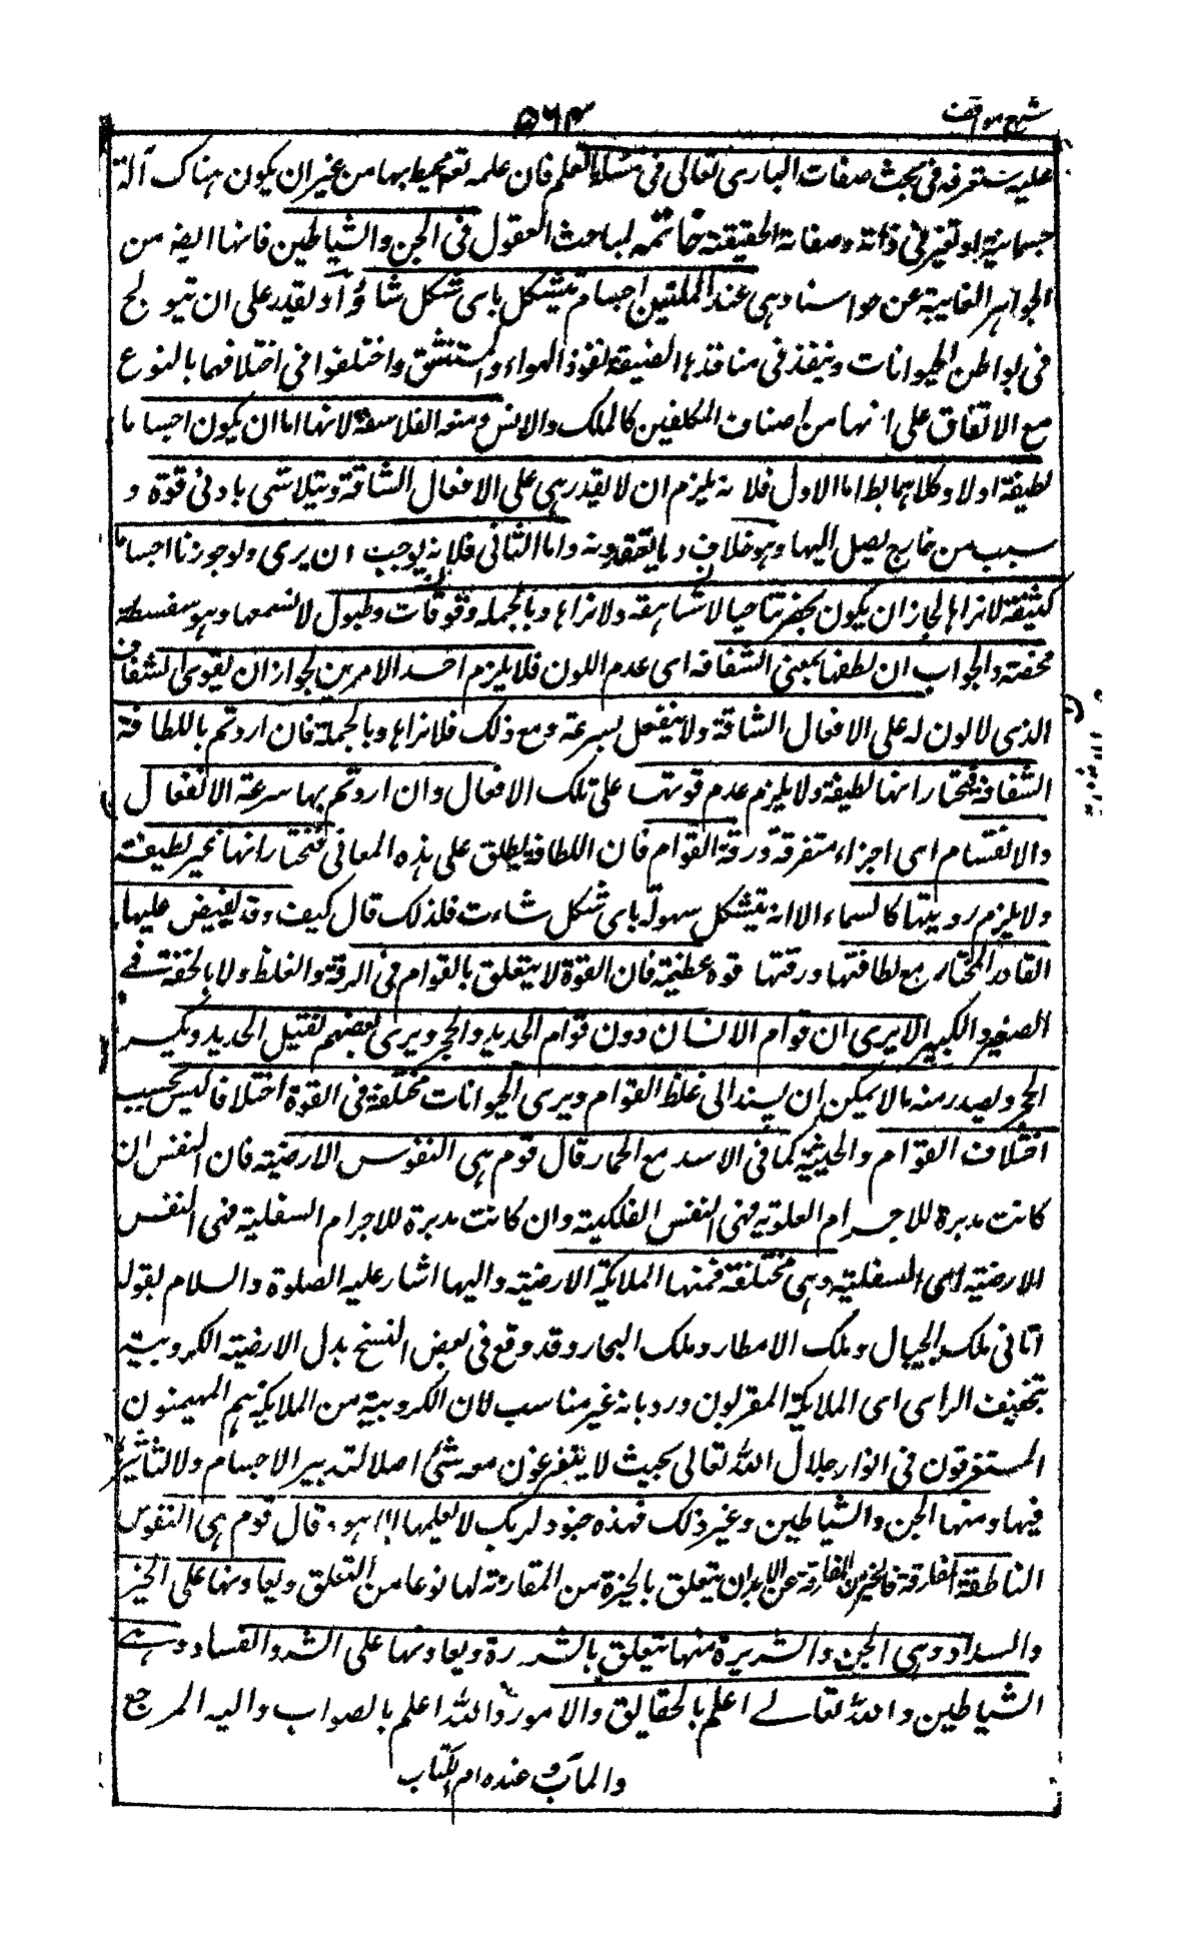 شرح مواقف
٥٦٤
عليه ستعرفه فى بحث صفات البارى تعالى فى مسئلة العلم فان علمه تعم محيط بها من غير ان يكون هناك آلة
جسمانية او تغير فى ذاته وصفاته الحقيقة خاتمه لمباحث العقول فى الجن والشياطين فانها ايضه من
الجواهر الغايبة عن حواسنا وهى عند المليين اجسام تتشكل باى شكل شاؤا ويقدر على ان تيولج
فى بواطن الحيوانات وينفذ فى منافذها الضيقة نفوذ الهواء المستنشق واختلفوا فى اختلافهما بالنوع
مع الاتفاق على انهما من اصناف المكلفين كالملك والانس ومنعه الفلاسفة لانها اما ان يكون اجساما
لطيفة اولا وكلاهما بط اما الاول فلانه يلزم ان لا يقدر هى على الافعال الشاقة ويتلاشى بادنى قوة و
سبب من خارج يصل اليها وهو خلاف ما يعتقدونه واما الثانى فلانه يوجب ان يرى ولو جوزنا اجساما
كثيفة لا نراها لجاز ان يكون بحضرتنا جبال شاهقه ولا نراها وبالجمله وبوقات وطبول لا نسمعها وهو سفسطة
محضة والجواب ان لطفها بمعنى الشفافه اى عدم اللون فلا يلزم احد الامرين لجواز ان يقوى الشفاف
الذى لا لون له على الافعال الشاقة ولا ينفعل بسرعة ومع ذلك فلا نراها وبالجملة فان اردتم باللطافة
الشفافة فنختار انها لطيفة ولا يلزم عدم قوتها على تلك الافعال وان اردتم بها سرعة الانفعال
والانقسام الى اجزاء متفرقة ورقة القوام فان اللطافة يطلق على هذه المعانى فنختار انها غير لطيفة
ولا يلزم رويتها كالسماء الا انه يتشكل بسهولة باى شكل شاءت فلذلك قال كيف وقد يفيض عليها
القادر المختار مع لطافتها ورقتها قوة عظيمة فان القوة لا يتعلق بالقوام فى الرقة والغلظ ولا بالجثة فى
الصغر والكبر الا يرى ان قوام الانسان دون قوام الحديد والحجر ويرى بعضهم يفتيل الحديد ويكسر
الحجر ويصدر منه ما لا يمكن ان يسند الى غلظ القوام ويرى الحيوانات مختلفة فى القوة اختلافا ليس بحسب
اختلاف القوام والجثة كما فى الاسد مع الحمار قال قوم هى النفوس الارضية فان النفس ان
كانت مدبرة للاجرام العلوية فهى النفس الفلكية وان كانت مدبرة للاجرام السفلية فهى النفس
الارضية اى السفلية وهى مختلفة فمنها الملايكة الارضية واليها اشار عليه الصلوة والسلام بقوله
اتانى ملك الجبال وملك الامطار وملك البحار وقد وقع فى بعض النسخ بدل الارضية الكروبية
بتخفيف الراى اى الملايكة المقربون ورد بانه غير مناسب لان الكروبية من الملايكة هم المهيمنون
المستغرقون فى انوار جلال الله تعالى بحيث لا يتفرغون معه شئ اصلا لتدبير الاجسام ولا لتاثير
فيها ومنها الجن والشياطين وغير ذلك فهذه جنود لربك لا يعلمها الا هو وقال قوم هى النفوس
الناطقة المفارقة فالخيرة المفارقة عن الابدان يتعلق بالخيرة من المقارنة لها نوعا من التعلق ويعاونها على الخير
والسداد وهى الجن والشريرة منها يتعلق بالشريرة ويعاونها على الشر والفساد وهى
الشياطين والله تعالى اعلم بالحقايق والامور والله اعلم بالصواب واليه المرجع
والمآب وعنده ام الكتاب